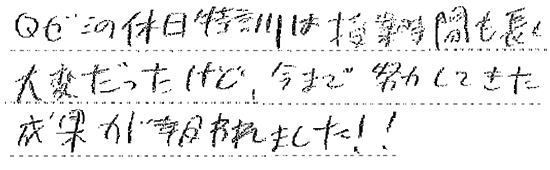 Qゼミの休日特訓は授業時間も長く
大変だったけど、今まで努力してきた
成果が表われました!!